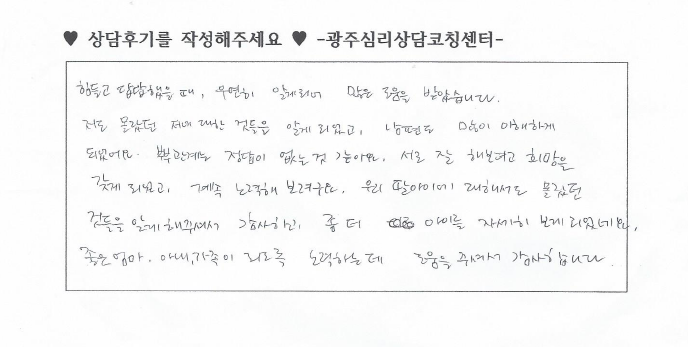 ♥ 상담후기를 작성해주세요 ♥ -광주심리상담코칭센터-
힘들고 답답했을 때, 우연히 알게되어 많은 도움을 받았습니다.
저도 몰랐던 저에 대한 것들은 알게 되었고, 남편도 많이 이해하게
되었어요. 부부관계는 정답이 없는 것 같아요. 서로 잘 해보려고 희망을
갖게 되었고, 계속 노력해 보려구요. 우리 딸아이에 대해서도 몰랐던
것들을 알게 해주셔서 감사하고, 좀 더 아이를 자세히 보게 되었네요.
좋은 엄마. 아내, 가족이 되도록 노력하는데 도움을 주셔서 감사합니다.